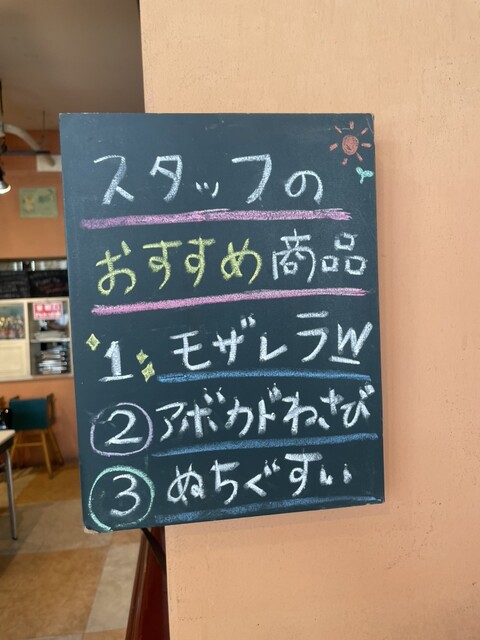 スタッフの
おすすめ商品
1 モザレラW
② アボカドねさび
③ ぬちぐすい